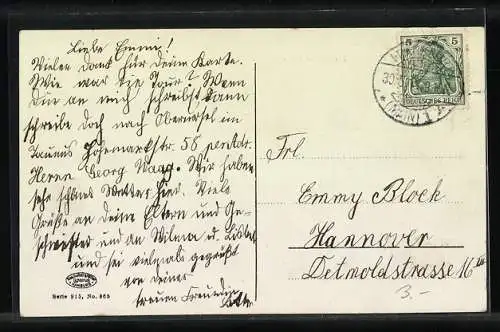 Liebe Emmi!
Vielen Dank für Deine Karte.
Wie war die Tour? Wenn
Du an mich schreibst, dann
schreibe doch nach Oberursel im
Taunus Hohemarkstr. 56 per Adr.
Herrn Georg Waag. Wir haben
sehr schönes Wetter hier. Viele
Grüße an Deine Eltern und Ge-
schwester und an Wilma u.
und sei vielmals gegrüßt
von Deiner
treuen Freundin
Serie 915, No. 865
5 5
DEUTSCHES REICH
(MAIN) 1
Frl.
Emmy Block
Hannover
Detmoldstrasse 16
3.-